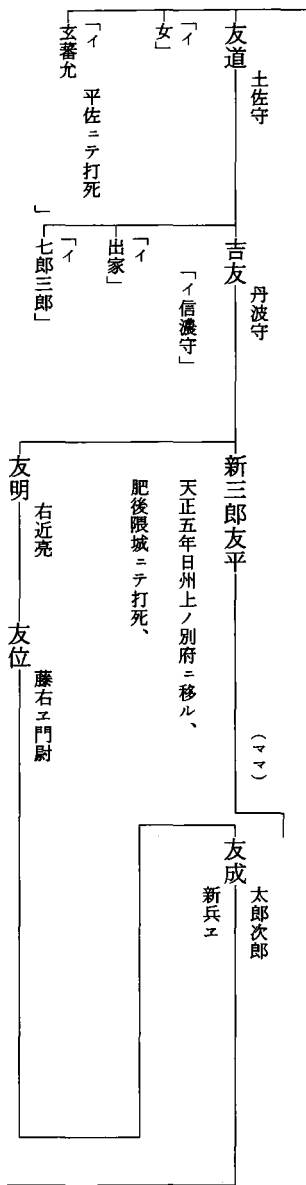 友道
土佐守
「イ
女」
「イ
玄蕃允
平佐ニテ打死
」
吉友
丹波守
「イ信濃守」
「イ
出家」
「イ
七郎三郎」
新三郎友平
天正五年日州上ノ別府ニ移ル、
肥後隈城ニテ打死、
(ママ)
友明
右近亮
友位
藤右ヱ門尉
友成
太郎次郎
新兵ヱ